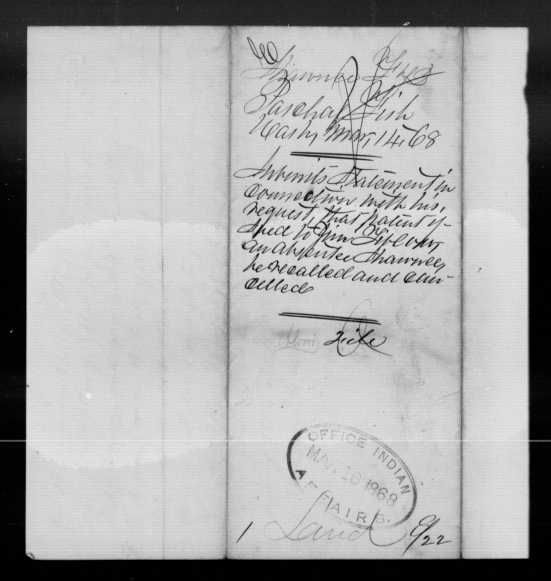 Shawnee
Paschal Fish
Wash, Mar, 14, 68
Submits Statement in
connection with his,
request, that patent is-
sued to Jim
an absentee Shawnee,
be recalled and can-
celled
file
OFFICE INDIAN
MAR 16 1868
AFFAIRS.
1 Land 9/22